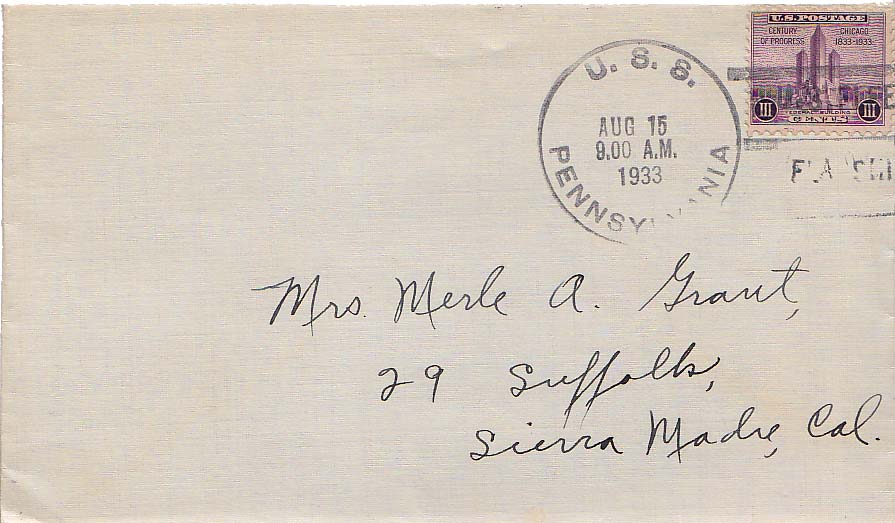 U.S. POSTAGE
CENTURY OF PROGRESS
CHICAGO 1833-1933
III III
FEDERAL BUILDING
U. S. S.
PENNSYLVANIA
AUG 15
9.00 A.M.
1933
Mrs. Merle A. Grant,
29 Suffolk,
Sierra Madre, Cal.